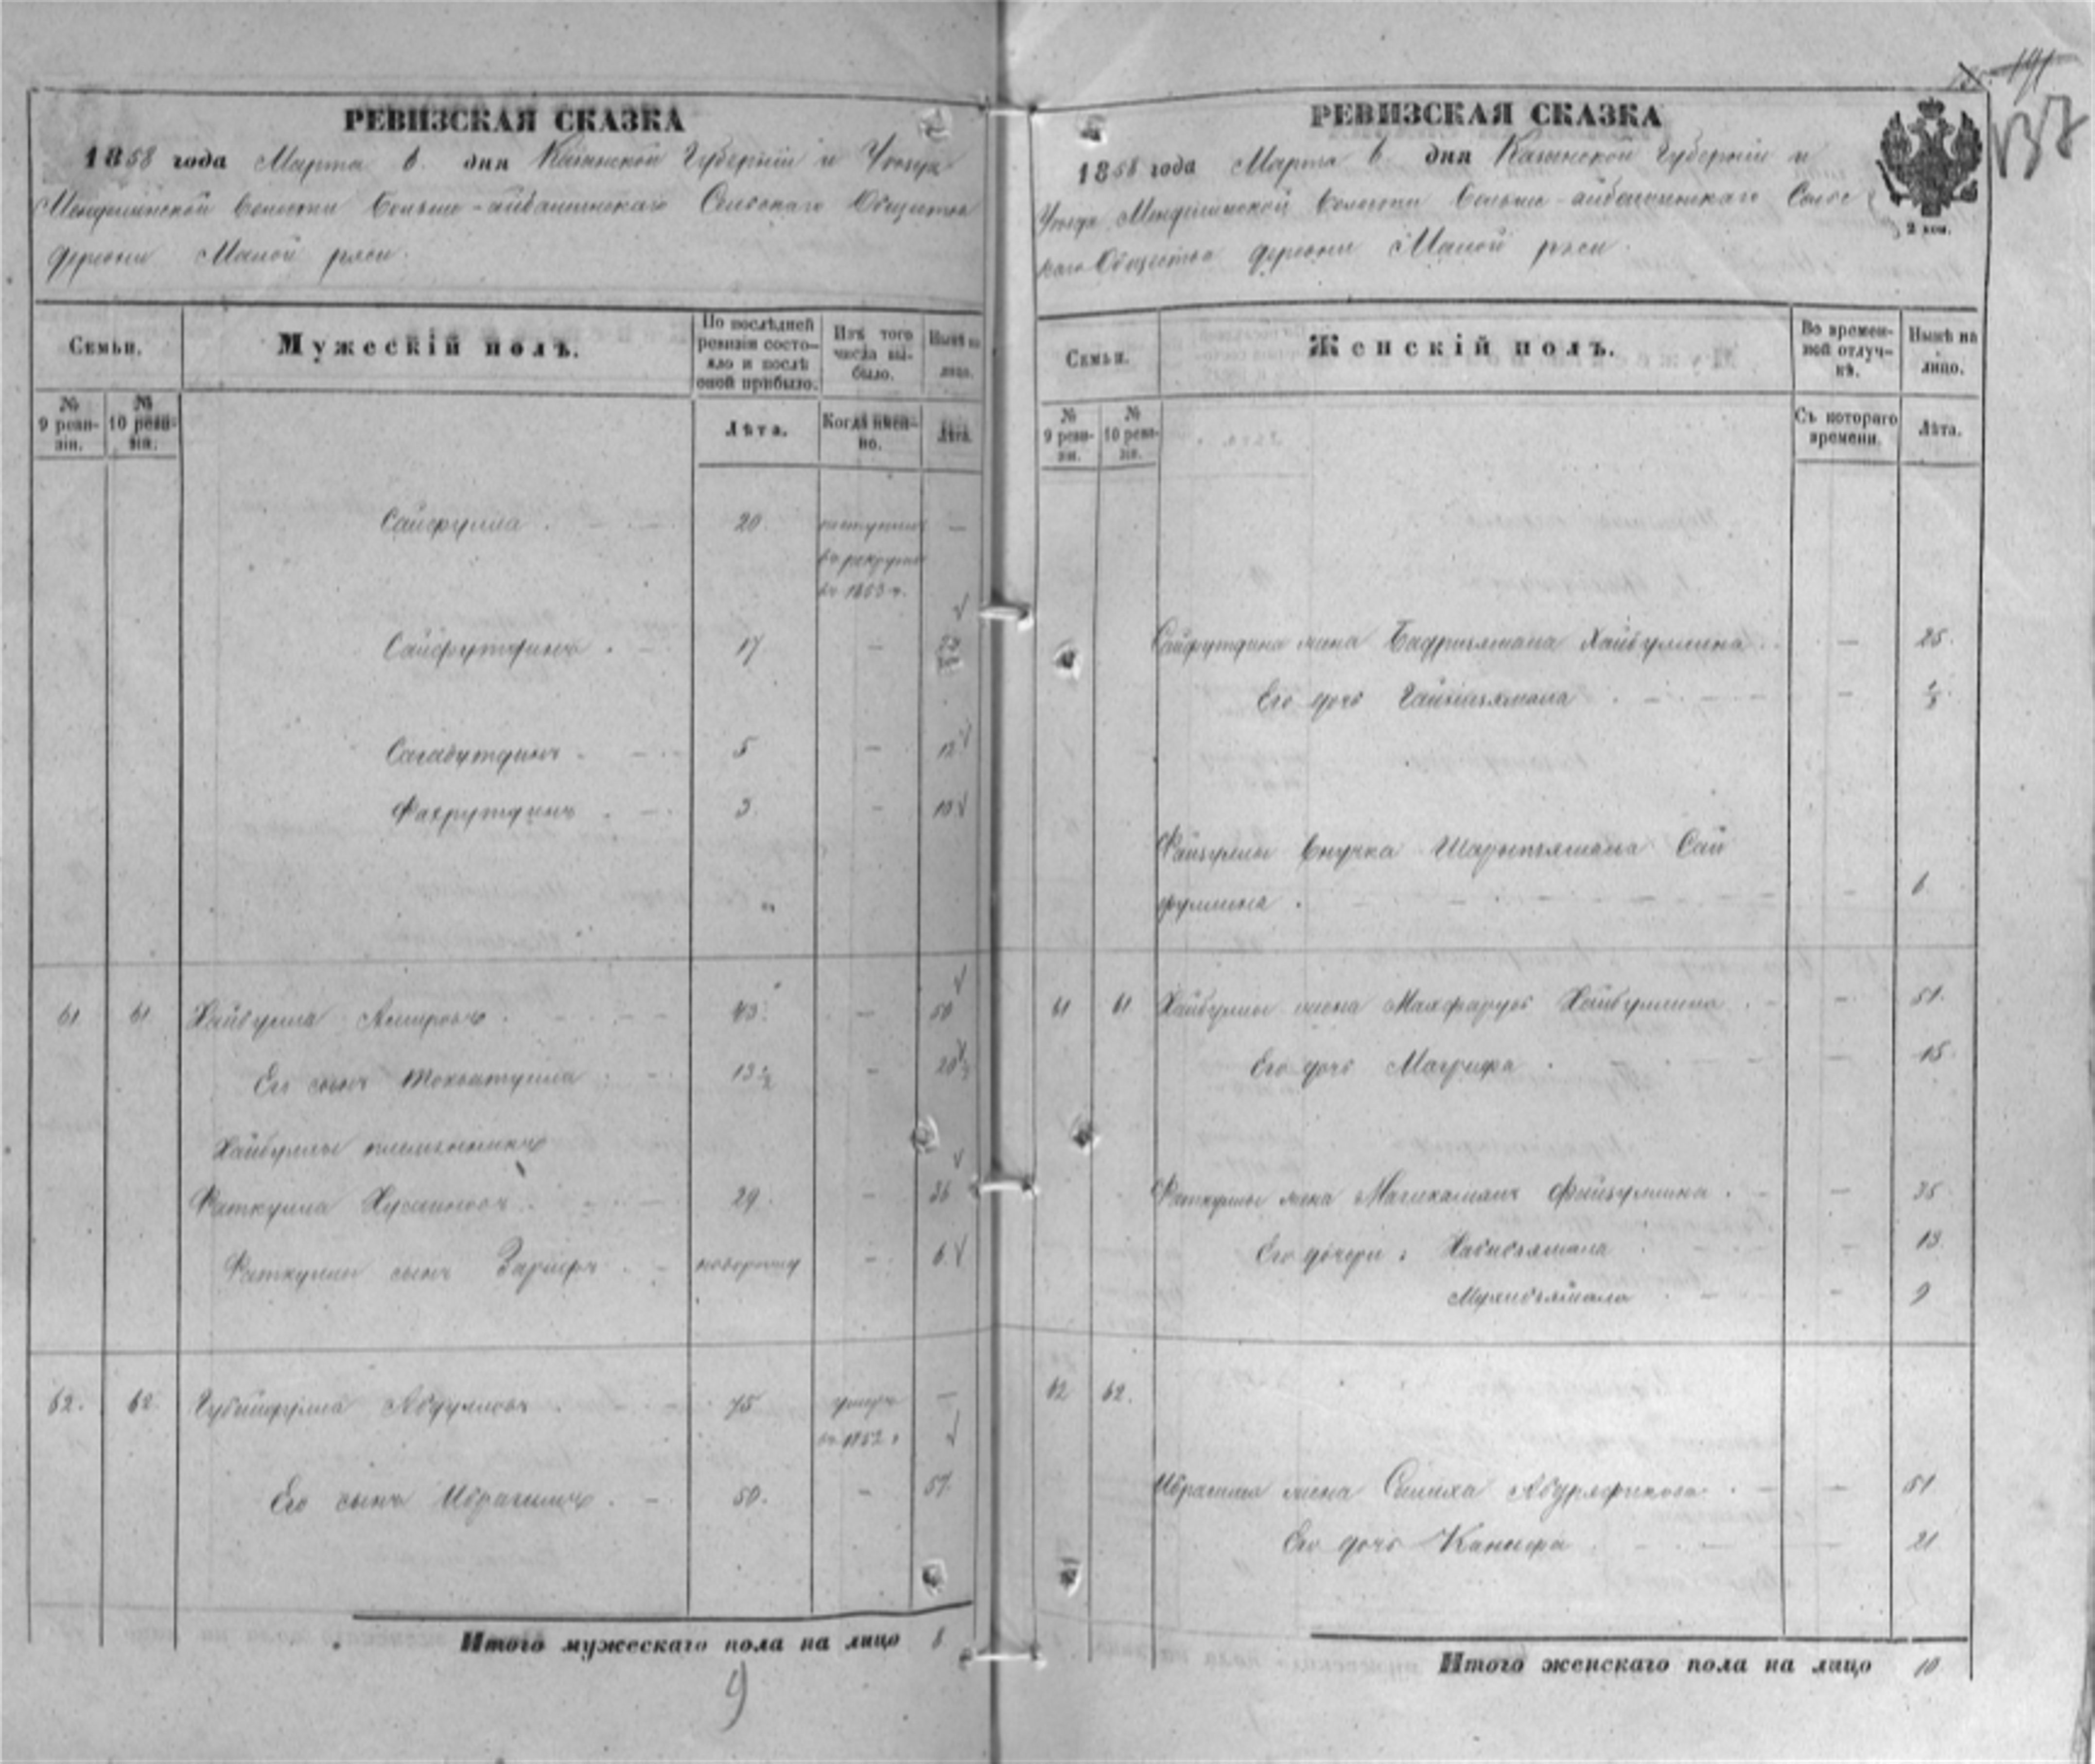 РЕВИЗСКАЯ СКАЗКА
1858 года Марта 6 дня Казанской Губернии и Уезда
Менделинской волости Больше-айбашинскаго Сельскаго Общества
деревни Малой ряси.
Семьи.
Мужескій полъ.
По послѣдней ревизіи состояло и послѣ оной прибыло.
Изъ того числа выбыло.
Нынѣ на лицо.
№ 9 ревизіи.
№ 10 ревизіи.
Лѣта.
Когда именно.
Лѣта.
Сайфулла 20. поступилъ —
въ рекруты
въ 1853 г.
Сайфутдинъ 17 —
Сагабутдинъ 5 — 12
Фахрутдинъ 3. — 10
61 61 Хайбулла Амировъ 43. — 50
Его сынъ 13½ — 20½
Хайбуллы племянникъ
Фаткулла Хусаиновъ 29. — 36
Фаткуллы сынъ Зарифъ новорожд — 6
62. 62 Губайдулла Абдулловъ 75 умеръ —
въ 1852 г
Его сынъ Ибрагимъ 50. — 57.
Итого мужескаго пола на лицо 8
9
191
137
РЕВИЗСКАЯ СКАЗКА
1858 года Марта 6 дня Казанской Губерніи и
Уезда Менделинской волости Больше-айбашинскаго Сельс
каго Общества деревни Малой ряси.
2 коп.
Семьи.
Женскій полъ.
Во временной отлучкѣ.
Нынѣ на лицо.
№ 9 ревизіи.
№ 10 ревизіи.
Съ котораго времени.
Лѣта.
Сайфутдина жена Бадригямала Хайбуллина — 25.
Его дочь Гайнигямала —
Файзуллы внучка Шарыпгямала Сай
фуллина — 6
61 61 Хайбуллы жена Махфаруй Хайбуллина — 51.
Его дочь Магрифа — 15
Фаткуллы жена Магикамалъ Файзуллина — 35
Его дочери: Хабибгямала — 13
Мухибгямала — 9
62 62.
Ибрагима жена Салиха — 51
Его дочь Ханифа — 21
Итого женскаго пола на лицо 10